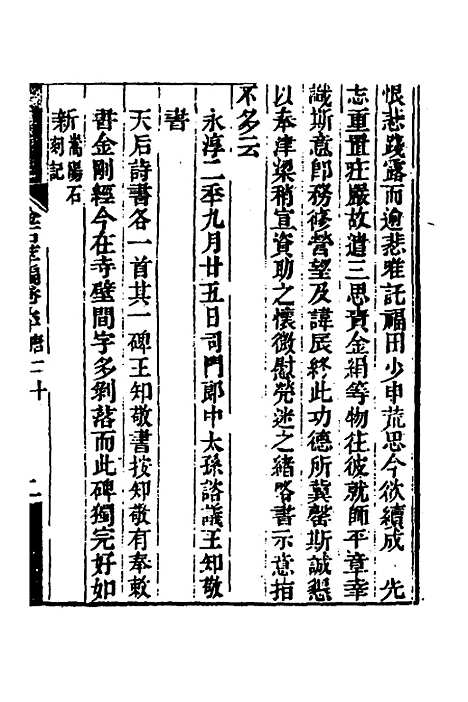 恨悲踐露而逾悲雖託福田少申荒思今欲續成　先
志重置莊嚴故遣三思賫金絹等物往彼就師平章幸
識斯意即務修營望及諱辰終此功德所冀罄斯誠懇
以奉津梁稍宣資助之懷微慰煢迷之緒略書示意指
不多云
永淳二年九月廿五日司門郎中太孫諮議王知敬
書
天后詩書各一首其一碑王知敬書按知敬有奉敕
書金剛經今在寺壁間字多剝落而此碑獨完好如
新嵩陽石
刻記
金石萃編卷六十唐二十
二